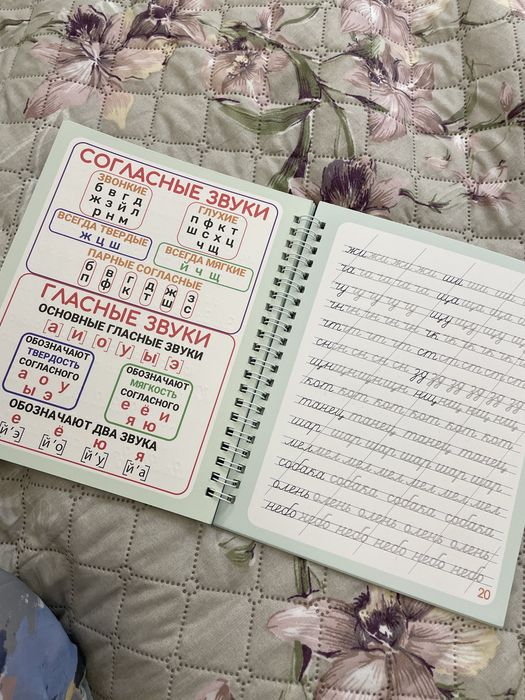 СОГЛАСНЫЕ ЗВУКИ
ЗВОНКИЕ
б в г д
ж з й л
р н м
ГЛУХИЕ
п ф к т
ш с х ц
ч щ
ВСЕГДА ТВЕРДЫЕ
ж ц ш
ВСЕГДА МЯГКИЕ
й ч щ
ПАРНЫЕ СОГЛАСНЫЕ
б в г д ж з
п ф к т ш с
ГЛАСНЫЕ ЗВУКИ
ОСНОВНЫЕ ГЛАСНЫЕ ЗВУКИ
а и о у ы э
ОБОЗНАЧАЮТ
ТВЕРДОСТЬ
СОГЛАСНОГО
а о у
ы э
ОБОЗНАЧАЮТ
МЯГКОСТЬ
СОГЛАСНОГО
е ё и
я ю
ОБОЗНАЧАЮТ ДВА ЗВУКА
е ё ю я
[й'э] [й'о] [й'у] [й'а]
жи жи жи жи ши ши ши ши
ча ча ча ча ча ща ща ща ща
чу чу чу чу чу щу щу щу щу
чн чн чн чн чн чк чк чк чк
чт чт чт чт чт ст ст ст ст
сн сн сн сн сн зд зд зд зд зд
щн щн щн щн нщ нщ нщ нщ
кот кот кот кот кот кот
танец танец танец танец
шар шар шар шар шар шар
мел мел мел мел мел мел
собака собака собака собака
олень олень олень олень олень
небо небо небо небо небо небо
20